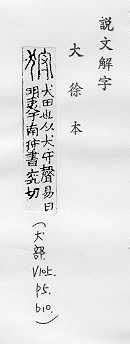 說文解字
大徐本
狩
犬田也从犬守聲易曰
明夷于南狩書究切
(犬部. V10上. P5. b10.)